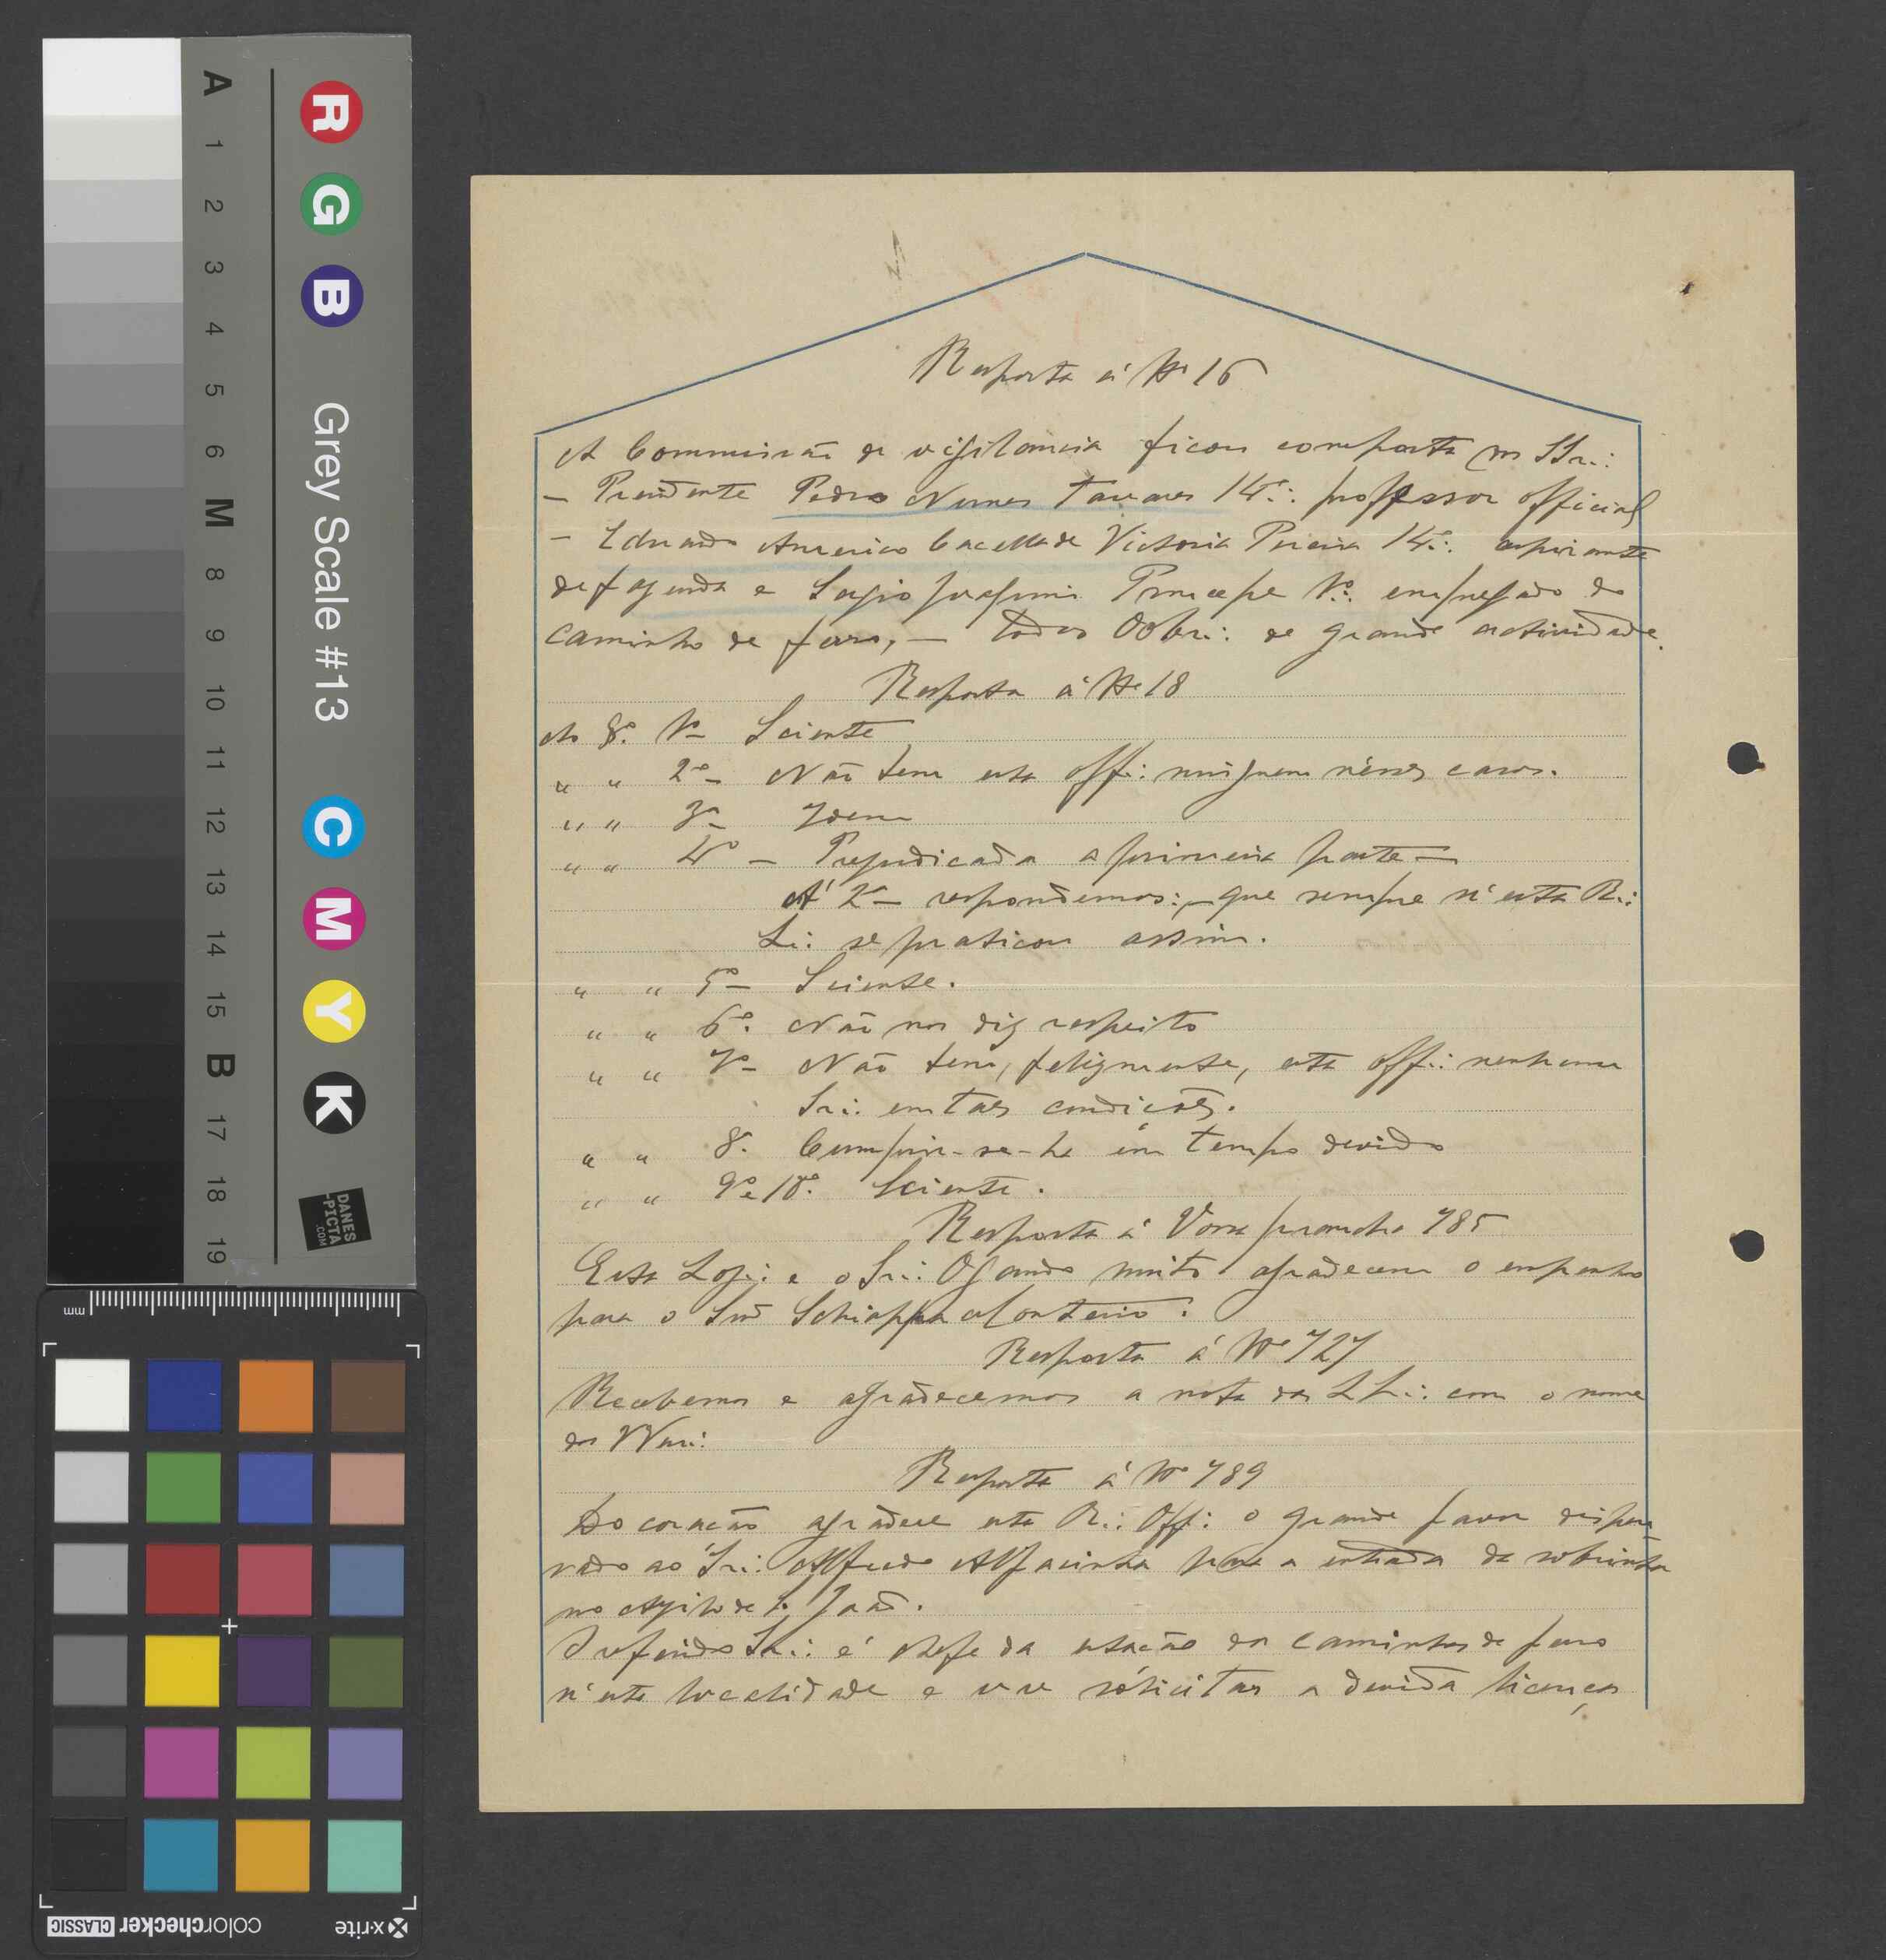 Resposta á Nº 16
A Commissão de vigilancia ficou composta
— Presidente Pedro Nunes Tavares professor official
— Eduardo Americo Victoria Pereira aspirante
de fazenda e Principe empregado do
caminho de ferro, — todos de grande actividade.
Resposta á Nº 18
Ao §. 1º Sciente
" " 2º — Não tem esta Off∴ ninguem nésses casos.
" " 3º Idem
" " 4º — Prejudicada a primeira parte —
Á 2ª — respondemos: — que sempre n'esta R∴
L∴ se praticou assim.
" " 5º — Sciente.
" " 6º. Não nos diz respeito
" " 7º — Não tem, felizmente, esta Off∴ nenhum
Ir∴ em taes condições.
" " 8º. Cumprir-se-ha em tempo devido
" " 9º e 10º. Sciente.
Resposta á Vossa prancha 785
Esta Loj∴ e o Ir∴ Ogando muito agradecem o empenho
para o Schiappa Monteiro.
Resposta á Nº 727
Recebemos e agradecemos a nota das LL∴ com o nome
dos VVen∴
Resposta á Nº 789
Do coração agradece esta R∴ Off∴ o grande favor dispen-
sado ao Ir∴ Alfredo Alfacinha para a entrada da sobrinha
no Azilo de S. João.
O referido Ir∴ é chefe da estação do caminho de ferro
n'esta localidade e vae sólicitar a devida licença
A
1
2
3
4
5
6
M
8
9
10
11
12
13
14
15
B
17
18
19
R G B
Grey Scale #13
C M Y K
DANES
-PICTA
.COM
mm
x-rite
colorchecker CLASSIC